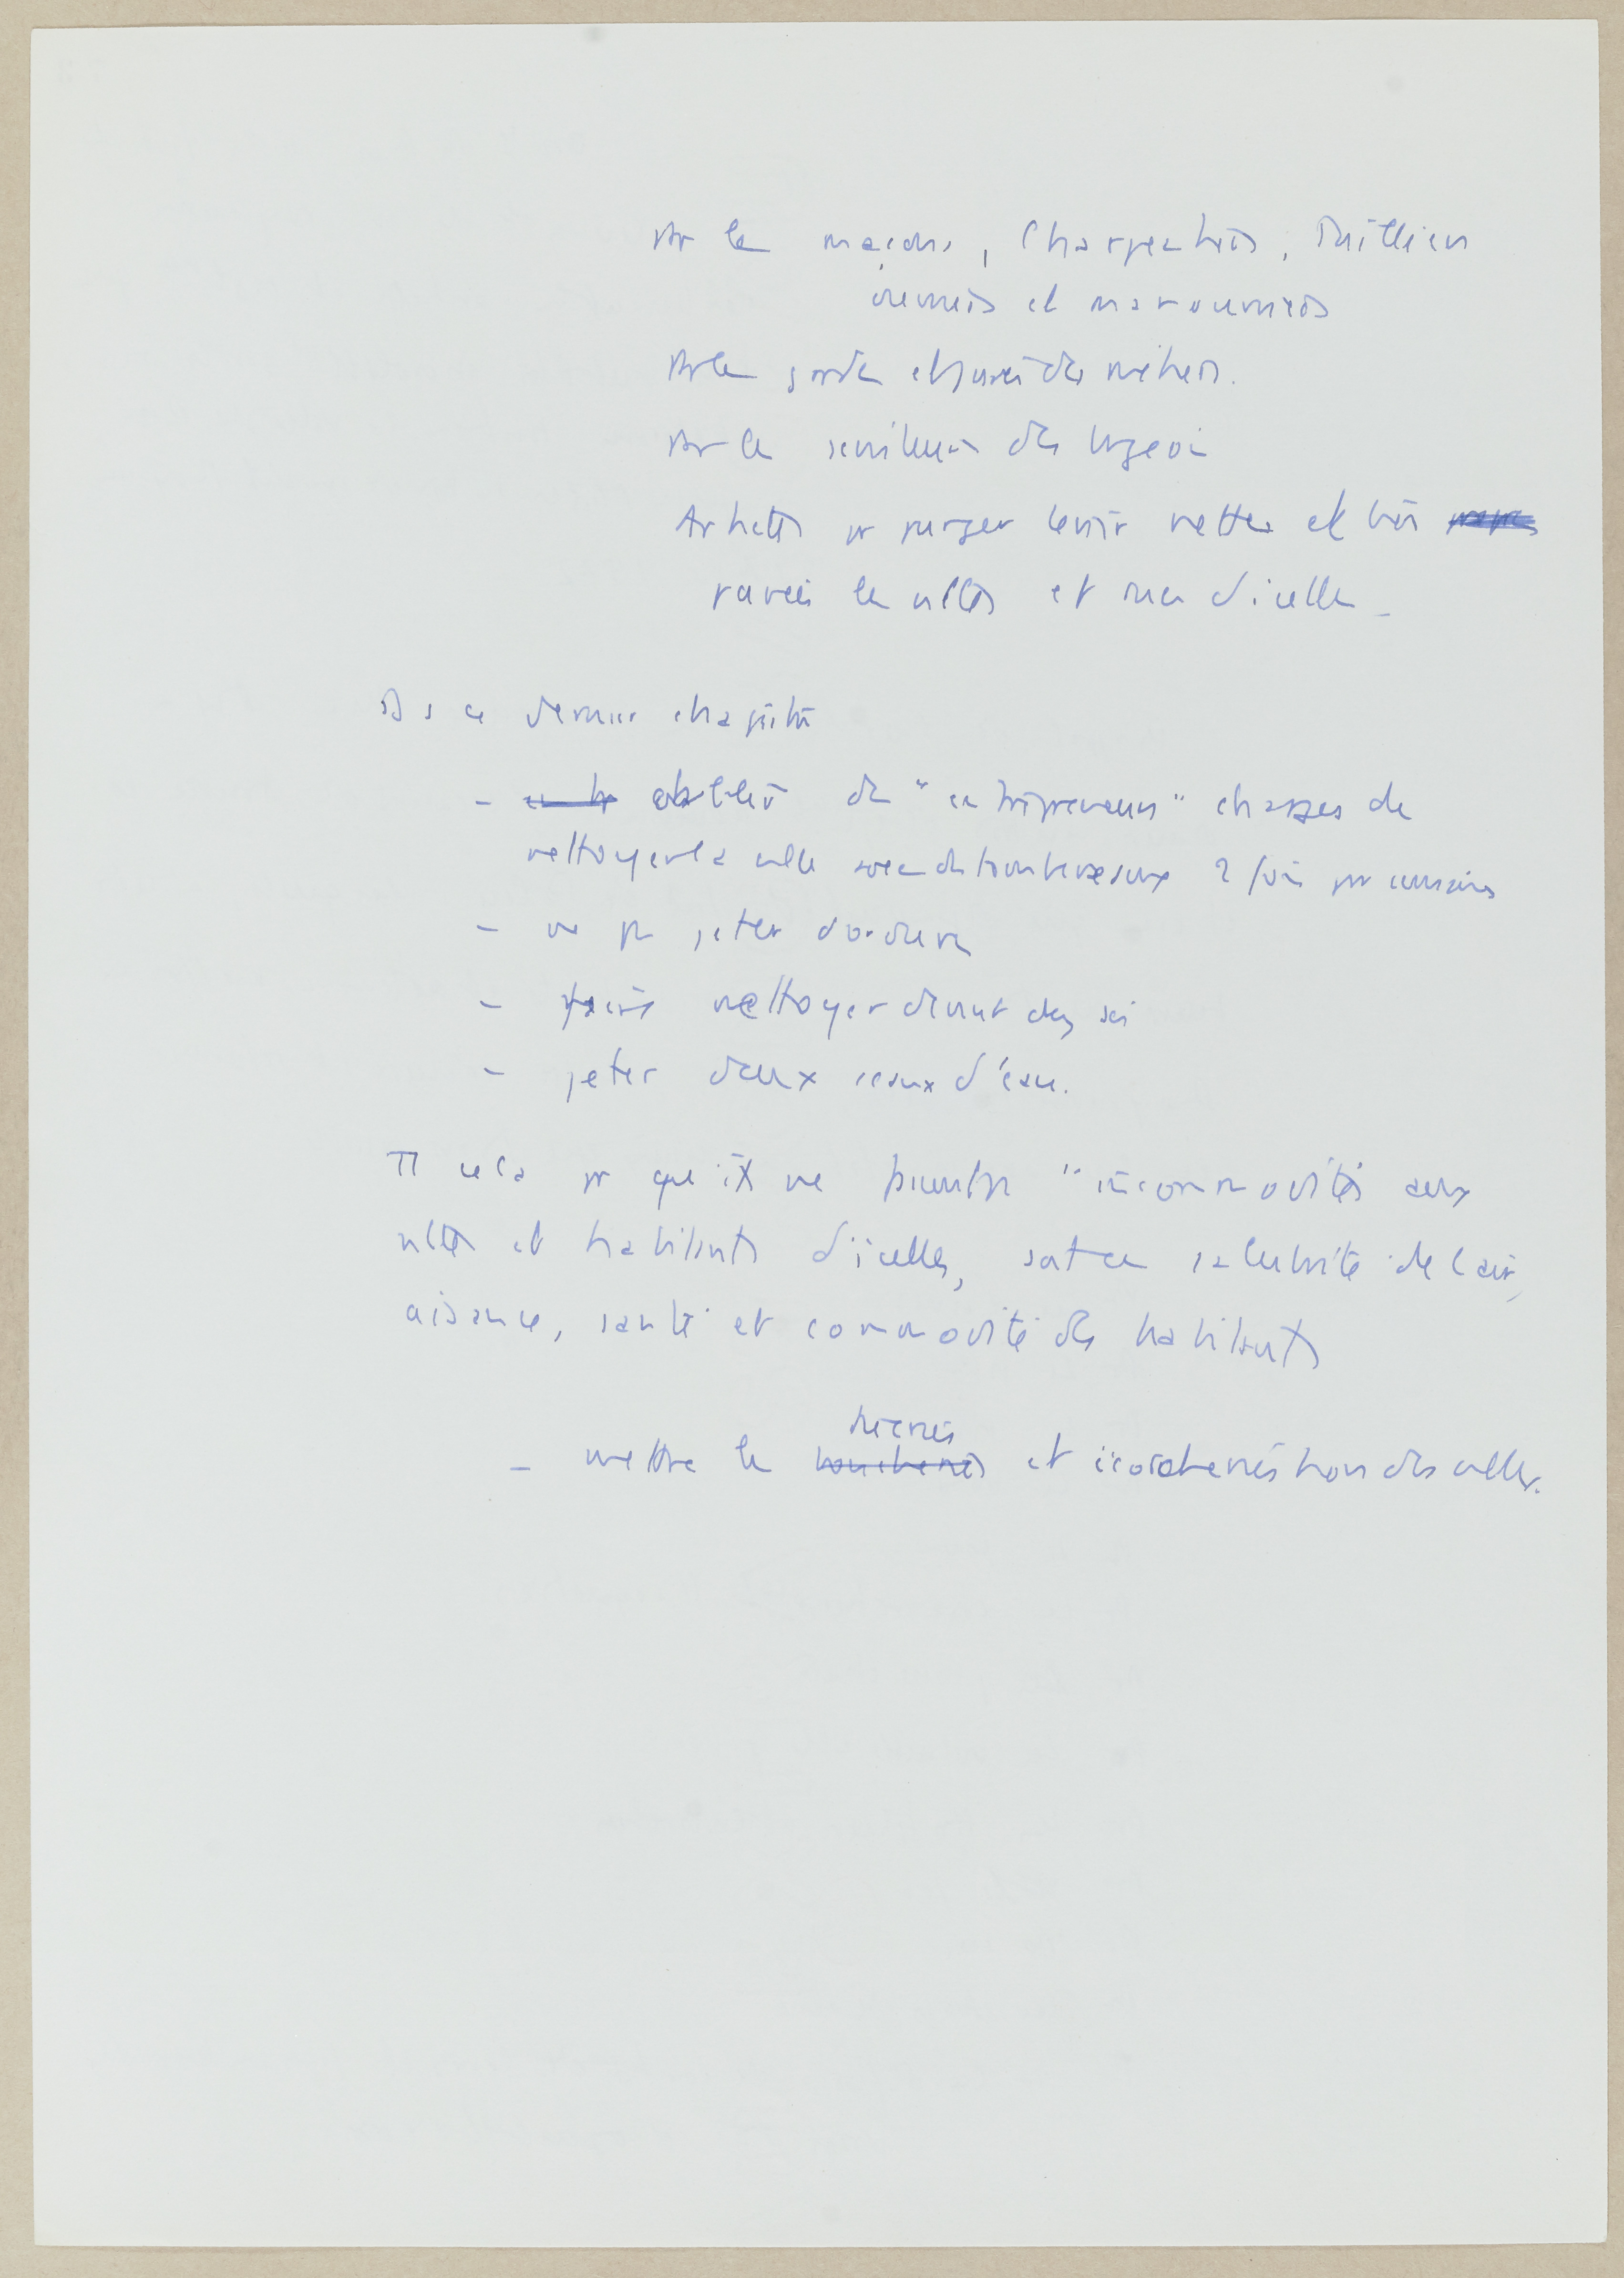 sr les maçons, Charpentiers, Tuilliers
et manouvriers
sr les gardes et jurés des métiers.
sr les serviteurs des bourgeois
Arrêtés pr purger tenir nettes et bien
pavées les villes et rues d'icelles -
Ds ce dernier chapitre
- établir des "entrepreneurs" chargés de
nettoyer la ville avec des tombereaux 2 fois par semaine
- ne pas jeter d'ordures
- faire nettoyer devant chez soi
- jeter deux seaux d'eau.
Tt cela pr que ne "incommodités aux
villes et habitants d'icelles, salubrité de l'air,
aisance, santé et commodité des habitants
- mettre les tueries et écorcheries hors des villes.